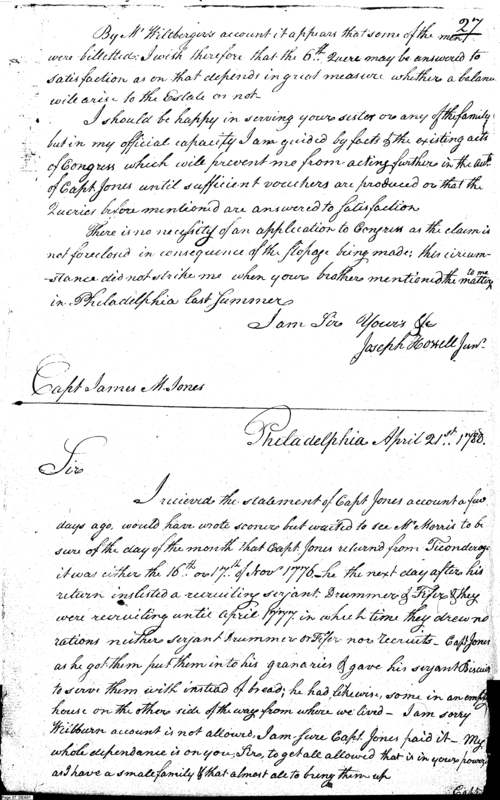 27
By Mr Wiltberger's account it appears that some of the men
were billetted: I wish therefore that the 6th. Quere may be answered to
satisfaction as on that depends in great measure whether a balance
will arise to the Estate or not
I should be happy in serving your sister or any of the family
but in my official capacity I am guided by facts & the existing acts
of Congress which will prevent me from acting further in the
of Capt Jones until sufficient vouchers are produced or that the
Queries before mentioned are answered to satisfaction
There is no necessity of an application to Congress as the claim is
not foreclosed in consequence of the stopage being made; this circum-
-stance did not strike me when your brother mentioned the matter to me
in Philadelphia last Summer
I am Sir Yours &c
Joseph Howell Junr.
Capt James M. Jones
Philadelphia April 21st. 1788.
Sir
I recieved the statement of Capt Jones account a few
days ago, would have wrote sooner but waited to see Mr Morris to be
sure of the day of the month that Capt Jones returnd from Ticonderoga
it was either the 16th or 17th of Novr 1776 - he the next day after his
return inlisted a recruiting serjant Drummer & Fifer & they
were recruiting until April 1777. in which time they drew no
rations neither serjant Drummer or Fifer nor recruits - Capt Jones
as he got them put them into his granaries & gave his serjant Biscuit
to serve them with instead of bread; he had likewise, some in an empty
house on the other side of the way from where we lived - I am sorry
Wilburn account is not allowed, I am sure Capt. Jones paid it - My
whole dependance is on you, Sir, to get all allowed that is in your power
as I have a small family & that almost all to bring them up
Capt
Page 27